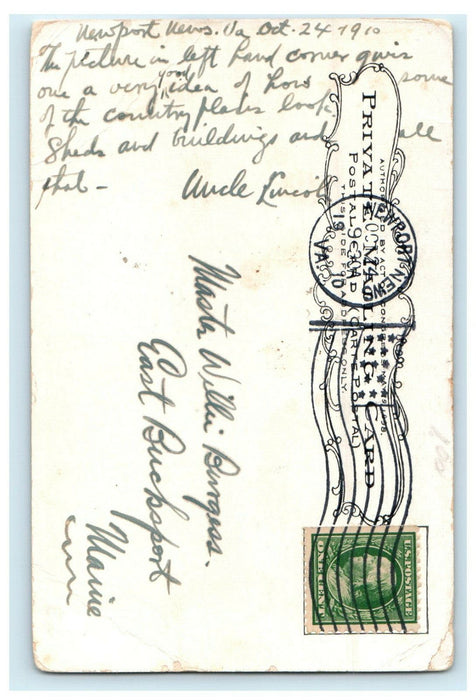 Newport News. Va Oct. 24 1910
The picture in left hand corner givis
one a very good idea of how some
of the country places look.
Sheds and buildings and all
that - Uncle Lincoln
PRIVATE MAILING CARD
AUTHORIZED BY ACT OF CONGRESS 1898
POSTAL CARD CARTE POSTALE
THIS SIDE FOR ADDRESS ONLY
NEWPORT NEWS
OCT 24
9 30 A
19 10
VA.
Master Willie Burgess.
East Bucksport
Maine
U.S. POSTAGE
ONE CENT